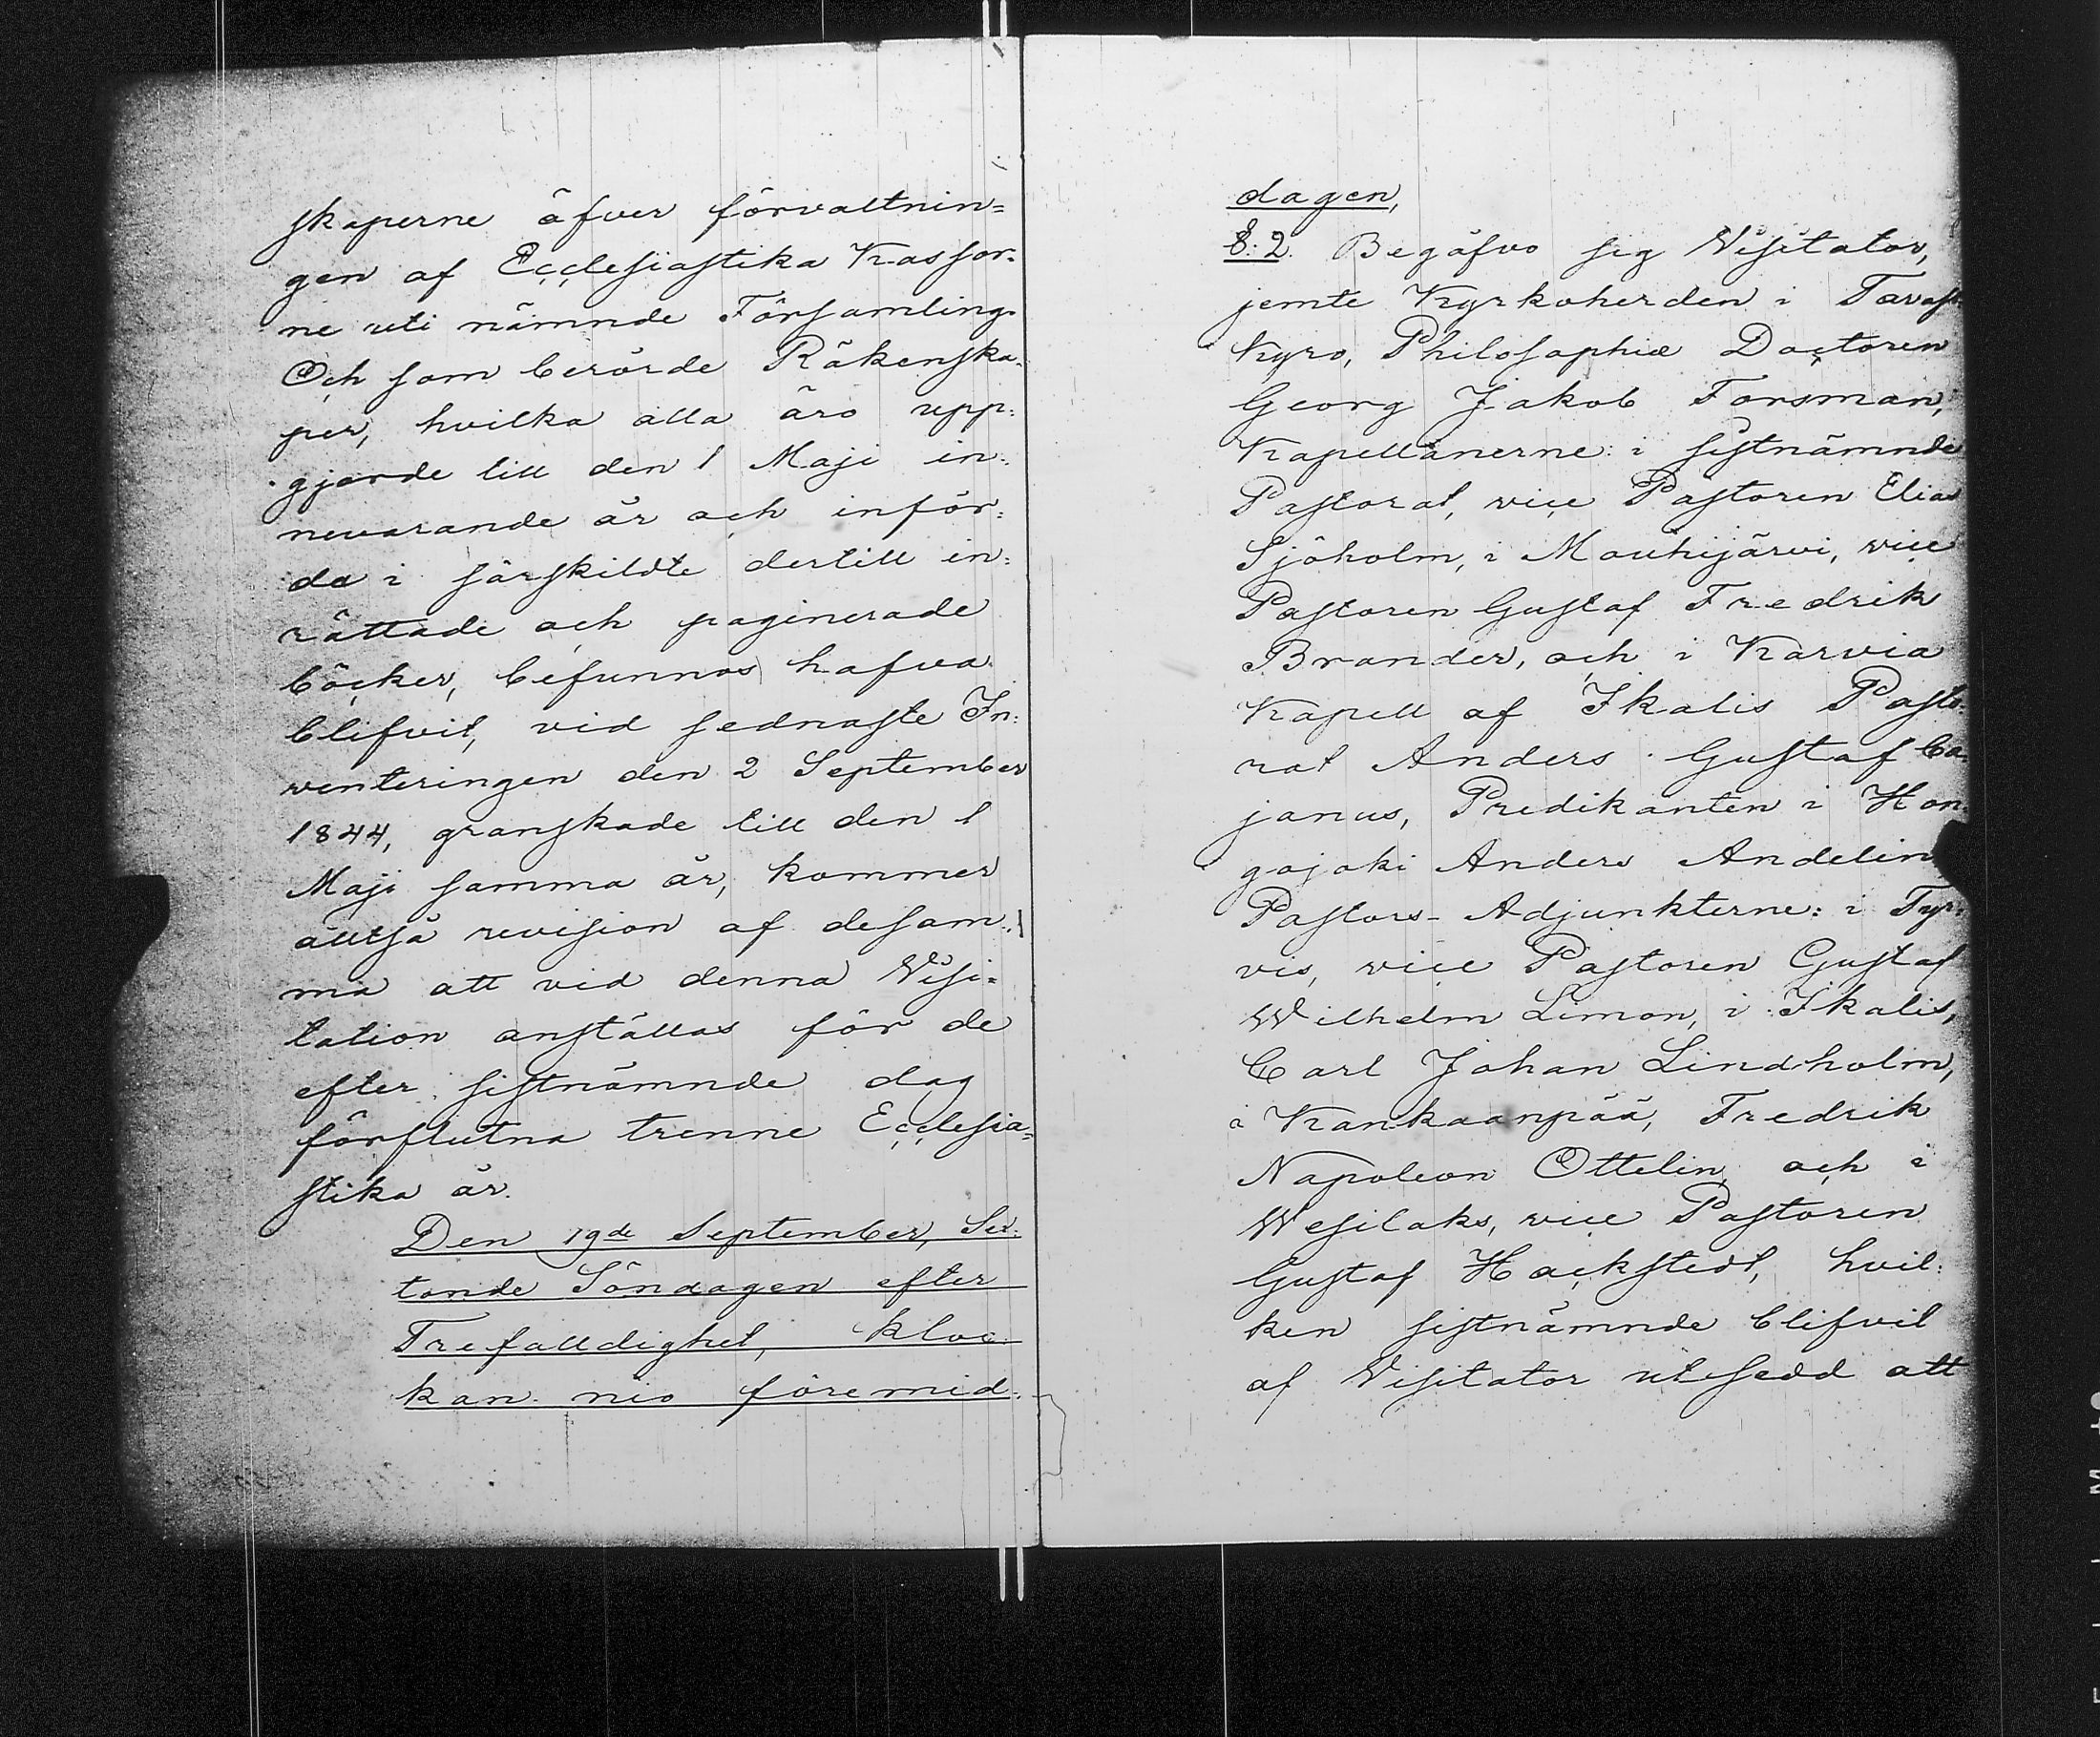 skaperne öfver förvaltnin=
gen af Ecclesiastika Kassor=
ne uti nämnde Församling.
Och som berörde Räkenska=
per, hvilka alla äro upp=
gjorde till den 1 Maji in=
nevarande år och inför=
da i särskildte dertill in=
rättade och paginerade
böcker, befunnos hafva
blifvit, vid sednaste In=
venteringen den 2 September
1844, granskade till den 1
Maji samma år, kommer
alltså revision af desam=
ma att vid denna Visi=
tation anställas för de
efter sistnämnde dag
förflutna trenne Ecclesia=
stika år.
Den 19de September, Sex=
tonde Söndagen efter
Trefalldighet, kloc=
kan nio föremid=
dagen,
§: 2. Begåfvo sig Visitator,
jemte Kyrkoherden i Tavast
Kyro, Philosophiæ Doctoren
Georg Jakob Forsman,
Kapellanerne: i sistnämnde
Pastorat, vice Pastoren Elias
Sjöholm, i Mouhijärvi, vice
Pastoren Gustaf Fredrik
Brander, och i Karvia
Kapell af Ikalis Pasto=
rat Anders Gustaf Ca=
janus, Predikanten i Hon=
gojoki Anders Andelin
Pastors-Adjunkterne: i Tyr=
vis, vice Pastoren Gustaf
Wilhelm Limon, i Ikalis,
Carl Johan Lindholm,
i Kankaanpää, Fredrik
Napoleon Ottelin, och i
Wesilaks, vice Pastoren
Gustaf Hackstedt, hvil=
ken sistnämnde blifvit
af Visitator utsedd att